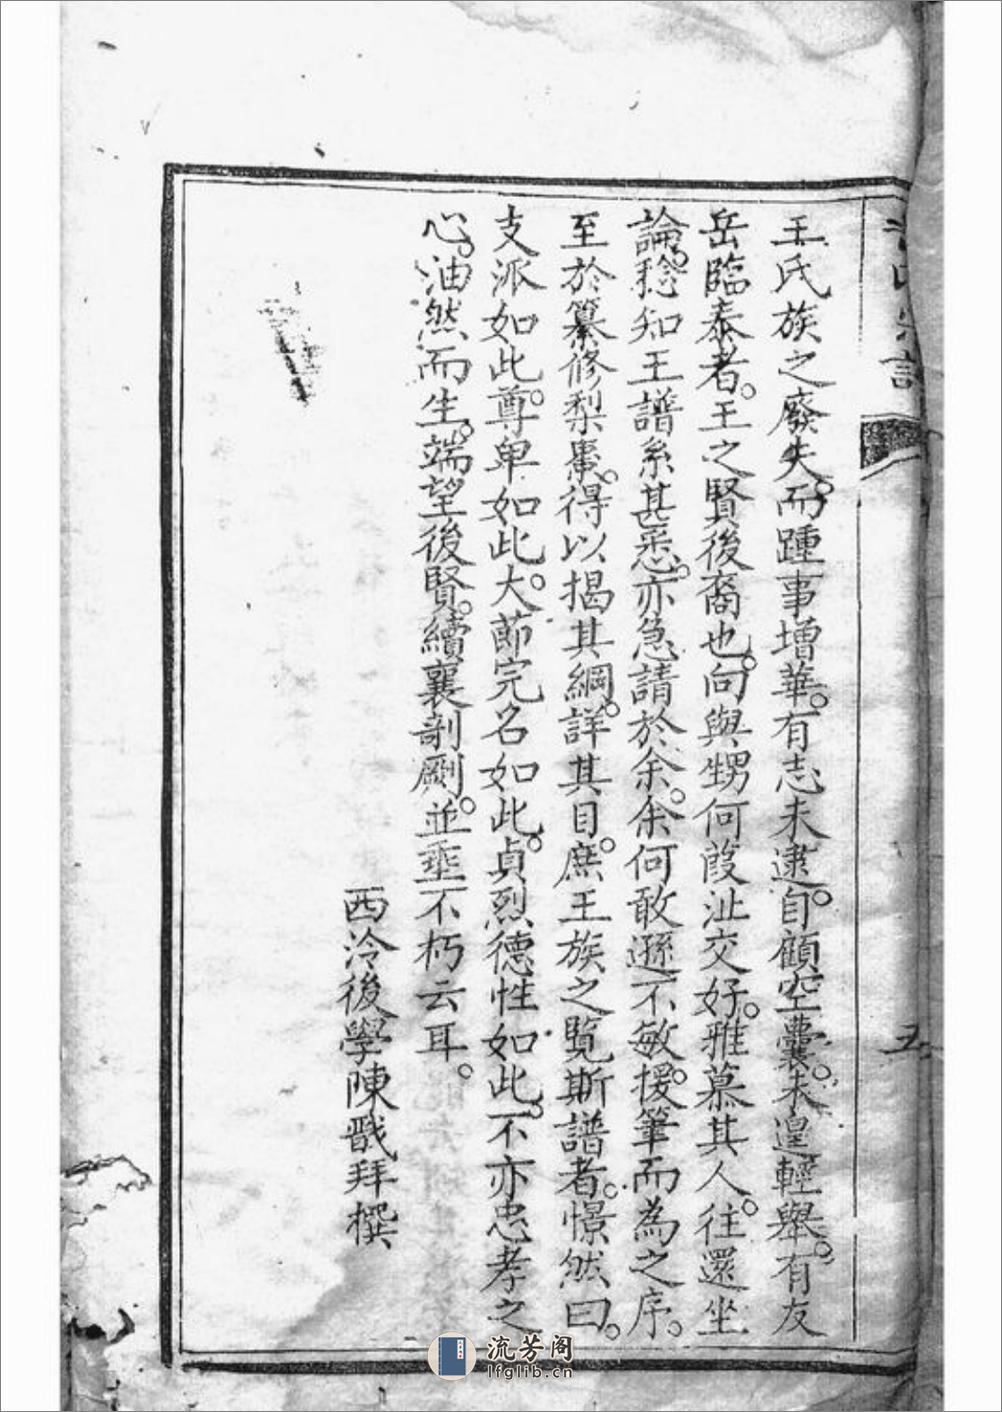 王氏族之廢失。而踵事增華。有志未逮。自顧空囊。未遑輕舉。有友
岳臨泰者。王之賢後裔也。向與甥何葭沚交好。雅慕其人。往還坐
論。稔知王譜系甚悉。亦急請於余。余何敢遜不敏。援筆而為之序。
至於纂修梨棗。得以揭其綱。詳其目。庶王族之覽斯譜者。憬然曰。
支派如此。尊卑如此。大節完名如此。貞烈德性如此。不亦忠孝之
心。油然而生。端望後賢。續襄剞劂。並垂不朽云耳。
西泠後學陳戩拜撰
五
流芳阁
lfglib.cn